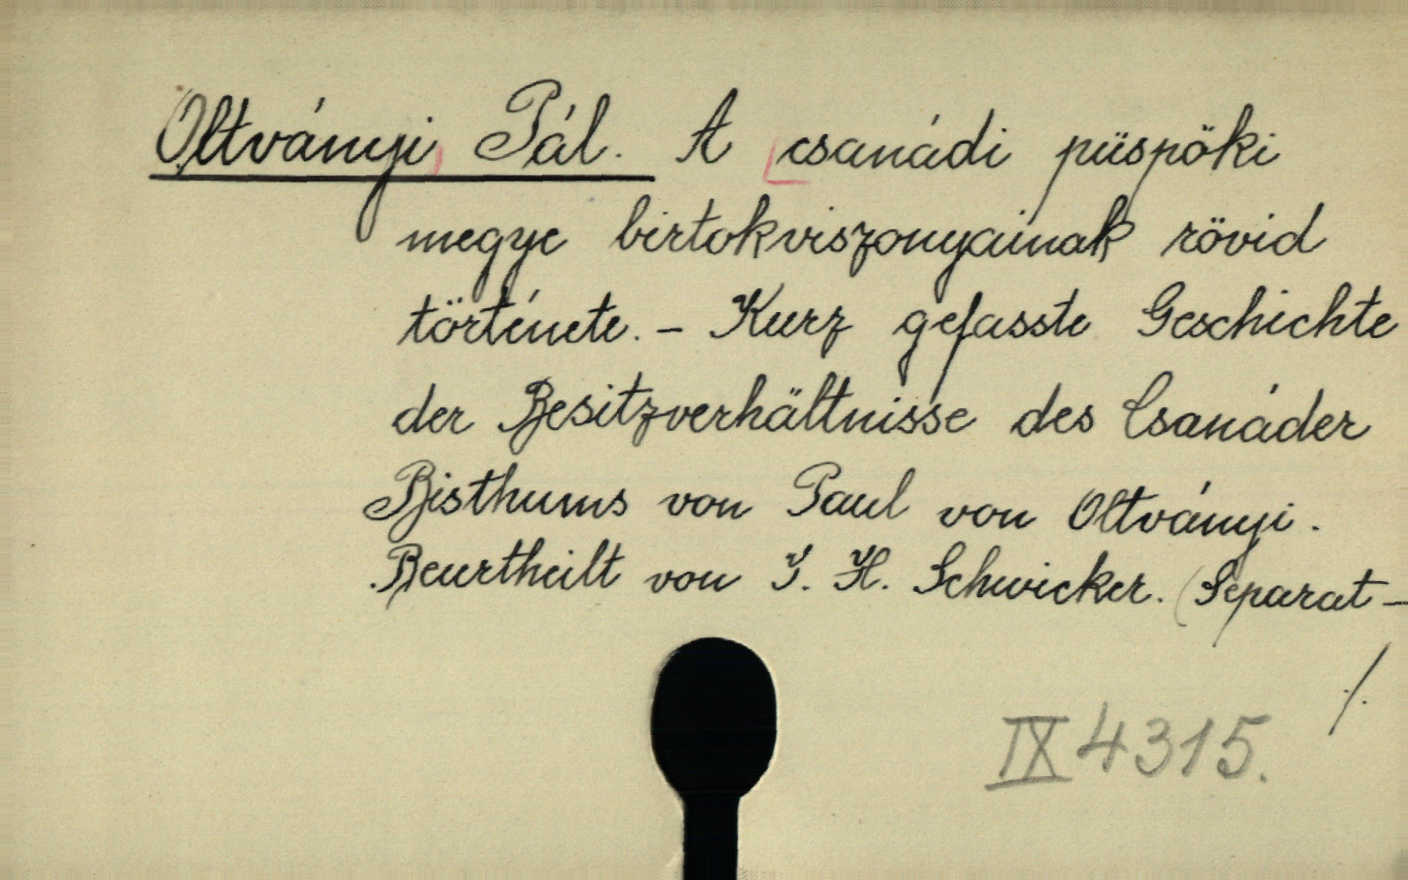 Oltványi Pál. A csanádi püspöki
megye birtokviszonyainak rövid
története. – Kurz gefasste Geschichte
der Besitzverhältnisse des Csanáder
Bisthums von Paul von Oltványi.
Beurtheilt von J. H. Schwicker. (Separat–
./.
IX 4315.